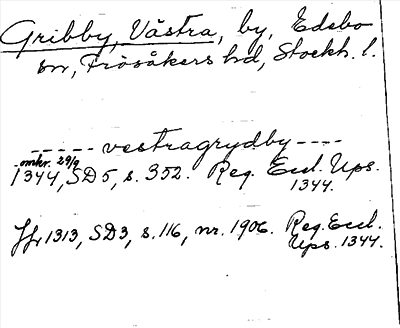 Gribby, Västra, by, Edebo
sn, Frösåkers hd, Stockh. l.
----- vestragrydby ----
omkr. 29/9
1344, SD5, s. 352. Reg. Eccl. Ups.
1344.
Jfr 1313, SD3, s. 116, nr. 1906. Reg. Eccl.
Ups. 1344.